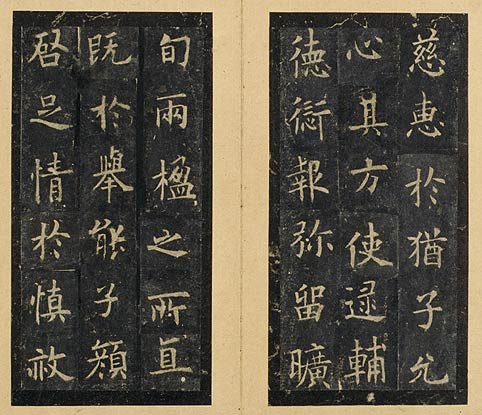 慈惠於猶子允
心其方使逮輔
德銜報弥留曠
旬兩楹之所直
既於舉能子顔
啓足情於慎赦